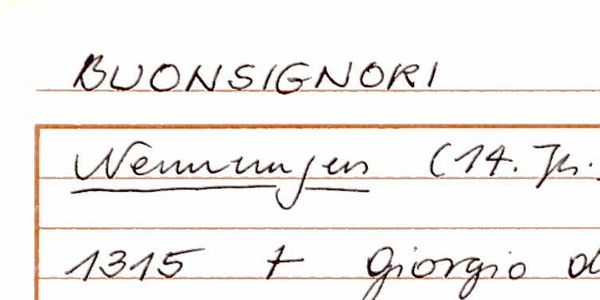 BUONSIGNORI
Nennungen (14. Jh.)
1315 † Giorgio d